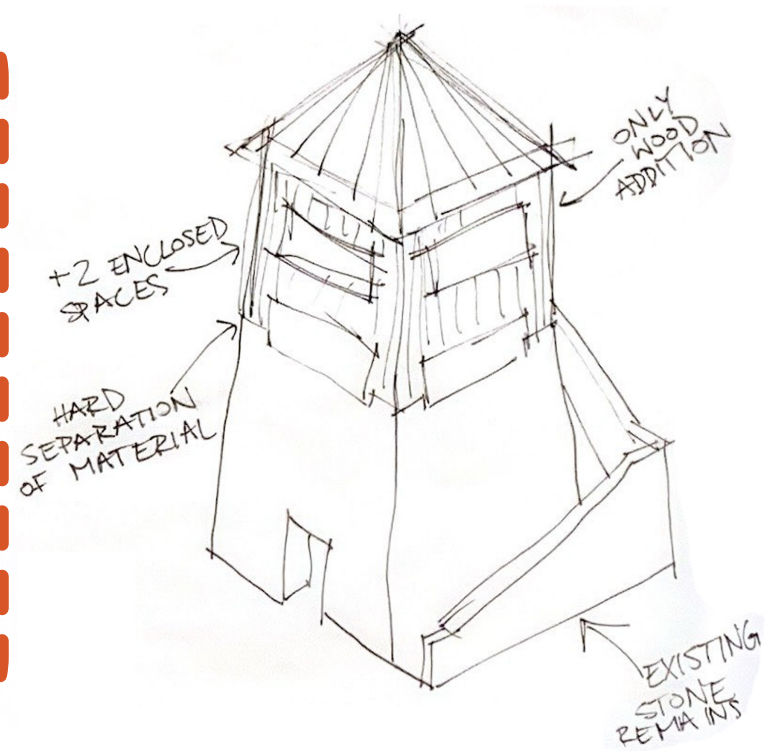 ONLY
WOOD
ADDITION
+2 ENCLOSED
SPACES
HARD
SEPARATION
OF MATERIAL
EXISTING
STONE
REMAINS